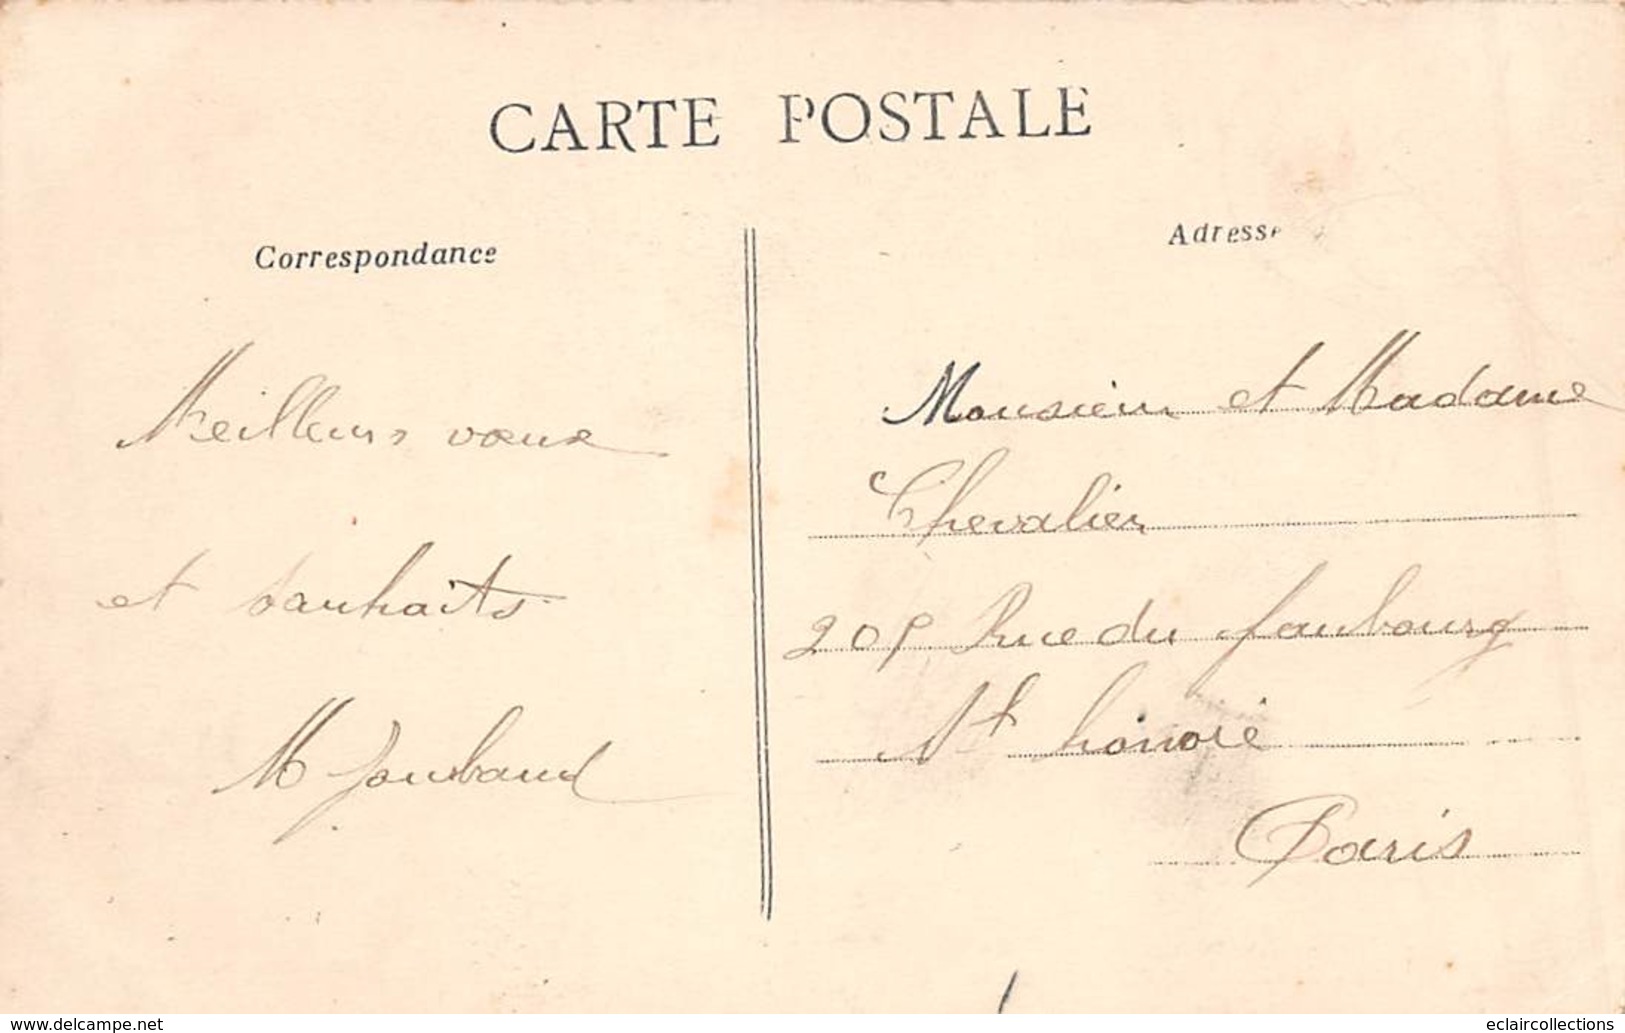 CARTE POSTALE
Correspondance
Adresse
Meilleurs vœux
et souhaits
M Joubaud
Monsieur et Madame
Chevalier
Rue du faubourg
St honoré
Paris
www.delcampe.net
eclaircollections